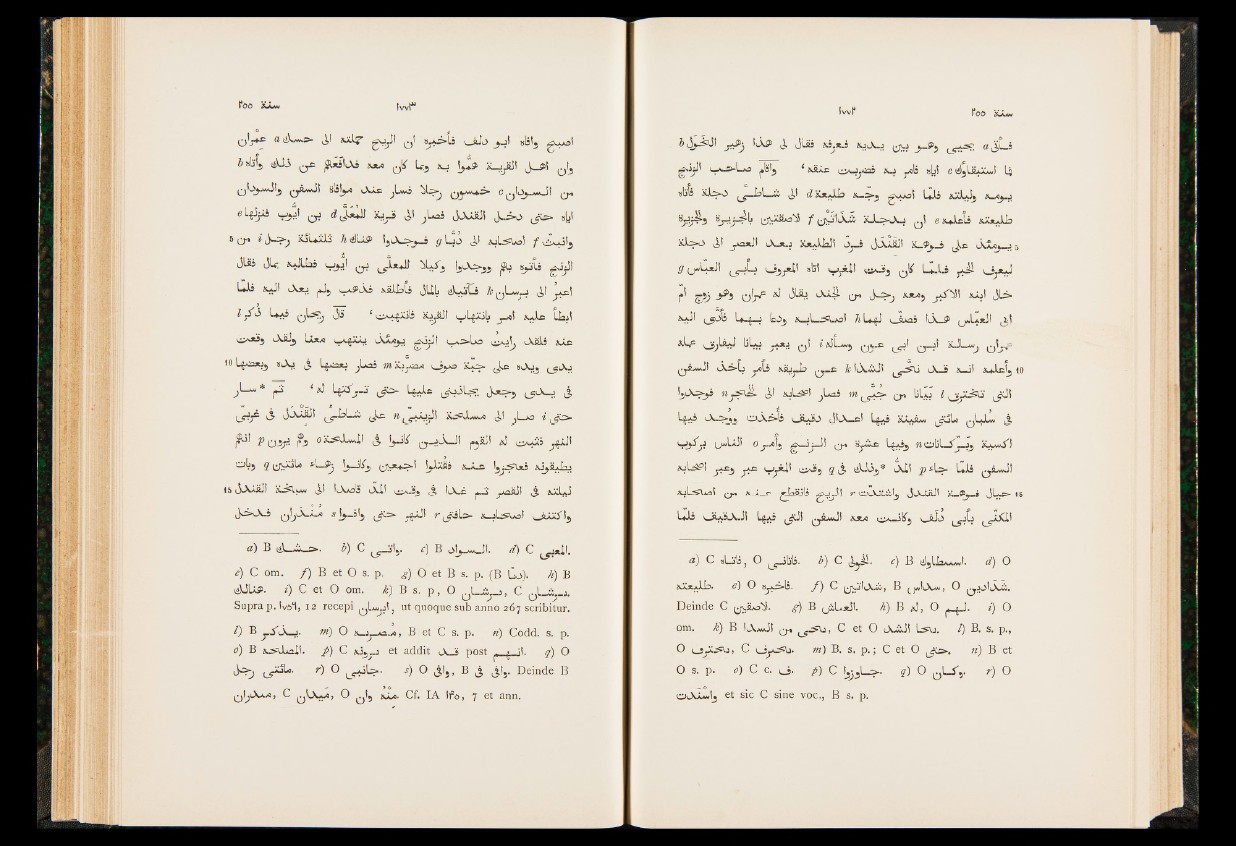 ۱۷۷۲ سنة ۲٥٥
فأتى a يحيى وهو بين يديه فعرفه فقال لى هذا زهير النخّول b
فما استبقاؤك c اياه فأمر به فضربت عنقه ‘ قال واقام صاحب الزنج
يومه وليلته فلما اصبح وجّه طليعة d الى شاطئ دجلة فأتاه
طليعته فأعلمه e ان بدجلة شذاتين f لاصقتين بالجزيرة والجزيرة
5 يومئذ على فوهة القندل فردّ الطليعة بعد العصر الى دجلة
ليعرف الخبر فلما كان وقت المغرب اتاه المعروف بأبى العبّاس g
خال ابنه الاكبر ومعه رجل من الجند يقال له عمران وهو زوج امّ
ابى العبّاس هذا فصف لهما h اصحابه ودعا بهما فأدّى اليه
عمران رسالة ابن ابى عون وسأله i ان يعبر بيانا ليفارق عمله
10 وأعلمه انه قد نحّى الشذا k عن طريقه فأمر بأخذ السفن
التى تخترق l بيانا من جبّى m فصار اصحابه الى الحجر n فوجدوا
فى سلبان مائتى سفينة فيها اعدال دقيق فأخذت ووجد فيها
اكسية وبركانات n وفيها عشرة من الزنج وأمر o الناس بركوب
السفن فلما جاء p المدّ *وذلك فى q وقت المغرب عبر وعبر اصحابه
15 حيال فوهة القندل واشتدّت r الريح فانقطع عنه من اصحابه
المكنى بأبى دلف وكانت معه السفن التى فيها الدقيق فلما
a) C فاتاه, O b) C c) B d) O
e) O f) C B O
Deinde C g) B h) B له, O لهم. i) O
om. k) B C et O l) B. s. p.,
O C m) B. s. p.; C et O حتى. n) B et
O s. p. o) C c. ف. p) C q) O وكان. r) O
et sic C sine voc., B s. p.
سنة ۲٥٥ ۱۷۷۳
اصبح وافاه ابو دلف فأخبره ان الريح حملته الى حسك a عمران
وان اهل القرية همّوا به وبما كان معه فدافعهم عن ذلك وأتاه b
من السودان c خمسون رجلا فسار عند موافاة السفن والسودان
اياه حتى دخل القندل فصار الى قرية للمعلّى d بن أيّوب فنزلها e
5 وانبثّ f اصحابه الى دبّا g فوجدوا هناك h ثلثمائة رجل i من
الزنج فأتوه بهم ووجدوا وكيلا للمعلى بن أيوب فطالبه بمال فقال
اعبر الى برسان k فآتيك بالمال فأطلقه فذهب ولم يعد اليه فلما
ابطأ عليه امر بانتهاب القرية فانتهبت ‘ قال ريحان فيما ذكر l
عنه فلقد رأيت صاحب الزنج يومئذ ينتهب معنا ولقد وقعت
10 يدى ويده على جبّة صوف مضرّبة m فصار بعضها فى يده وبعضها
فى يدى وجعل يجاذبنى عليها حتى تركتها له ‘ ثم *سار
حتى i صار الى مسلحة الزينبى n على شاطئ القندل فى غربىّ
النهر فثبت له القوم الذين كانوا فى المسلحة o وهم يرون p انهم
يطيقونه فعجزوا عنه فقتلوا اجمعين وكانوا زهاء مائتين q وبات
15 ليلته فى القصر ثم غدا فى وقت المدّ قاصدا الى سبخة القندل
واكتنف اصحابه حافتى r النهر حتى وافوا s منذران فدخل
a) B حشك. b) C واتى. c) B السواد. d) C
e) C om. f) B et O s. p. g) O et B s. p. (B دنا). h) B
هنالك. i) C et O om. k) B s. p, O C
Supra p. ۱۷٥۹, 12 recepi برسان, ut quoque sub anno 267 scribitur.
l) B يذكر. m) O B et C s. p. n) Codd. s. p.
o) B المصلحة. p) C et addit قد post انهم. q) O
مائتى رجل. r) O جانبى. s) O وافى, B فى وافى. Deinde B
C O Cf. IA ۱۴٥, 7 et ann.